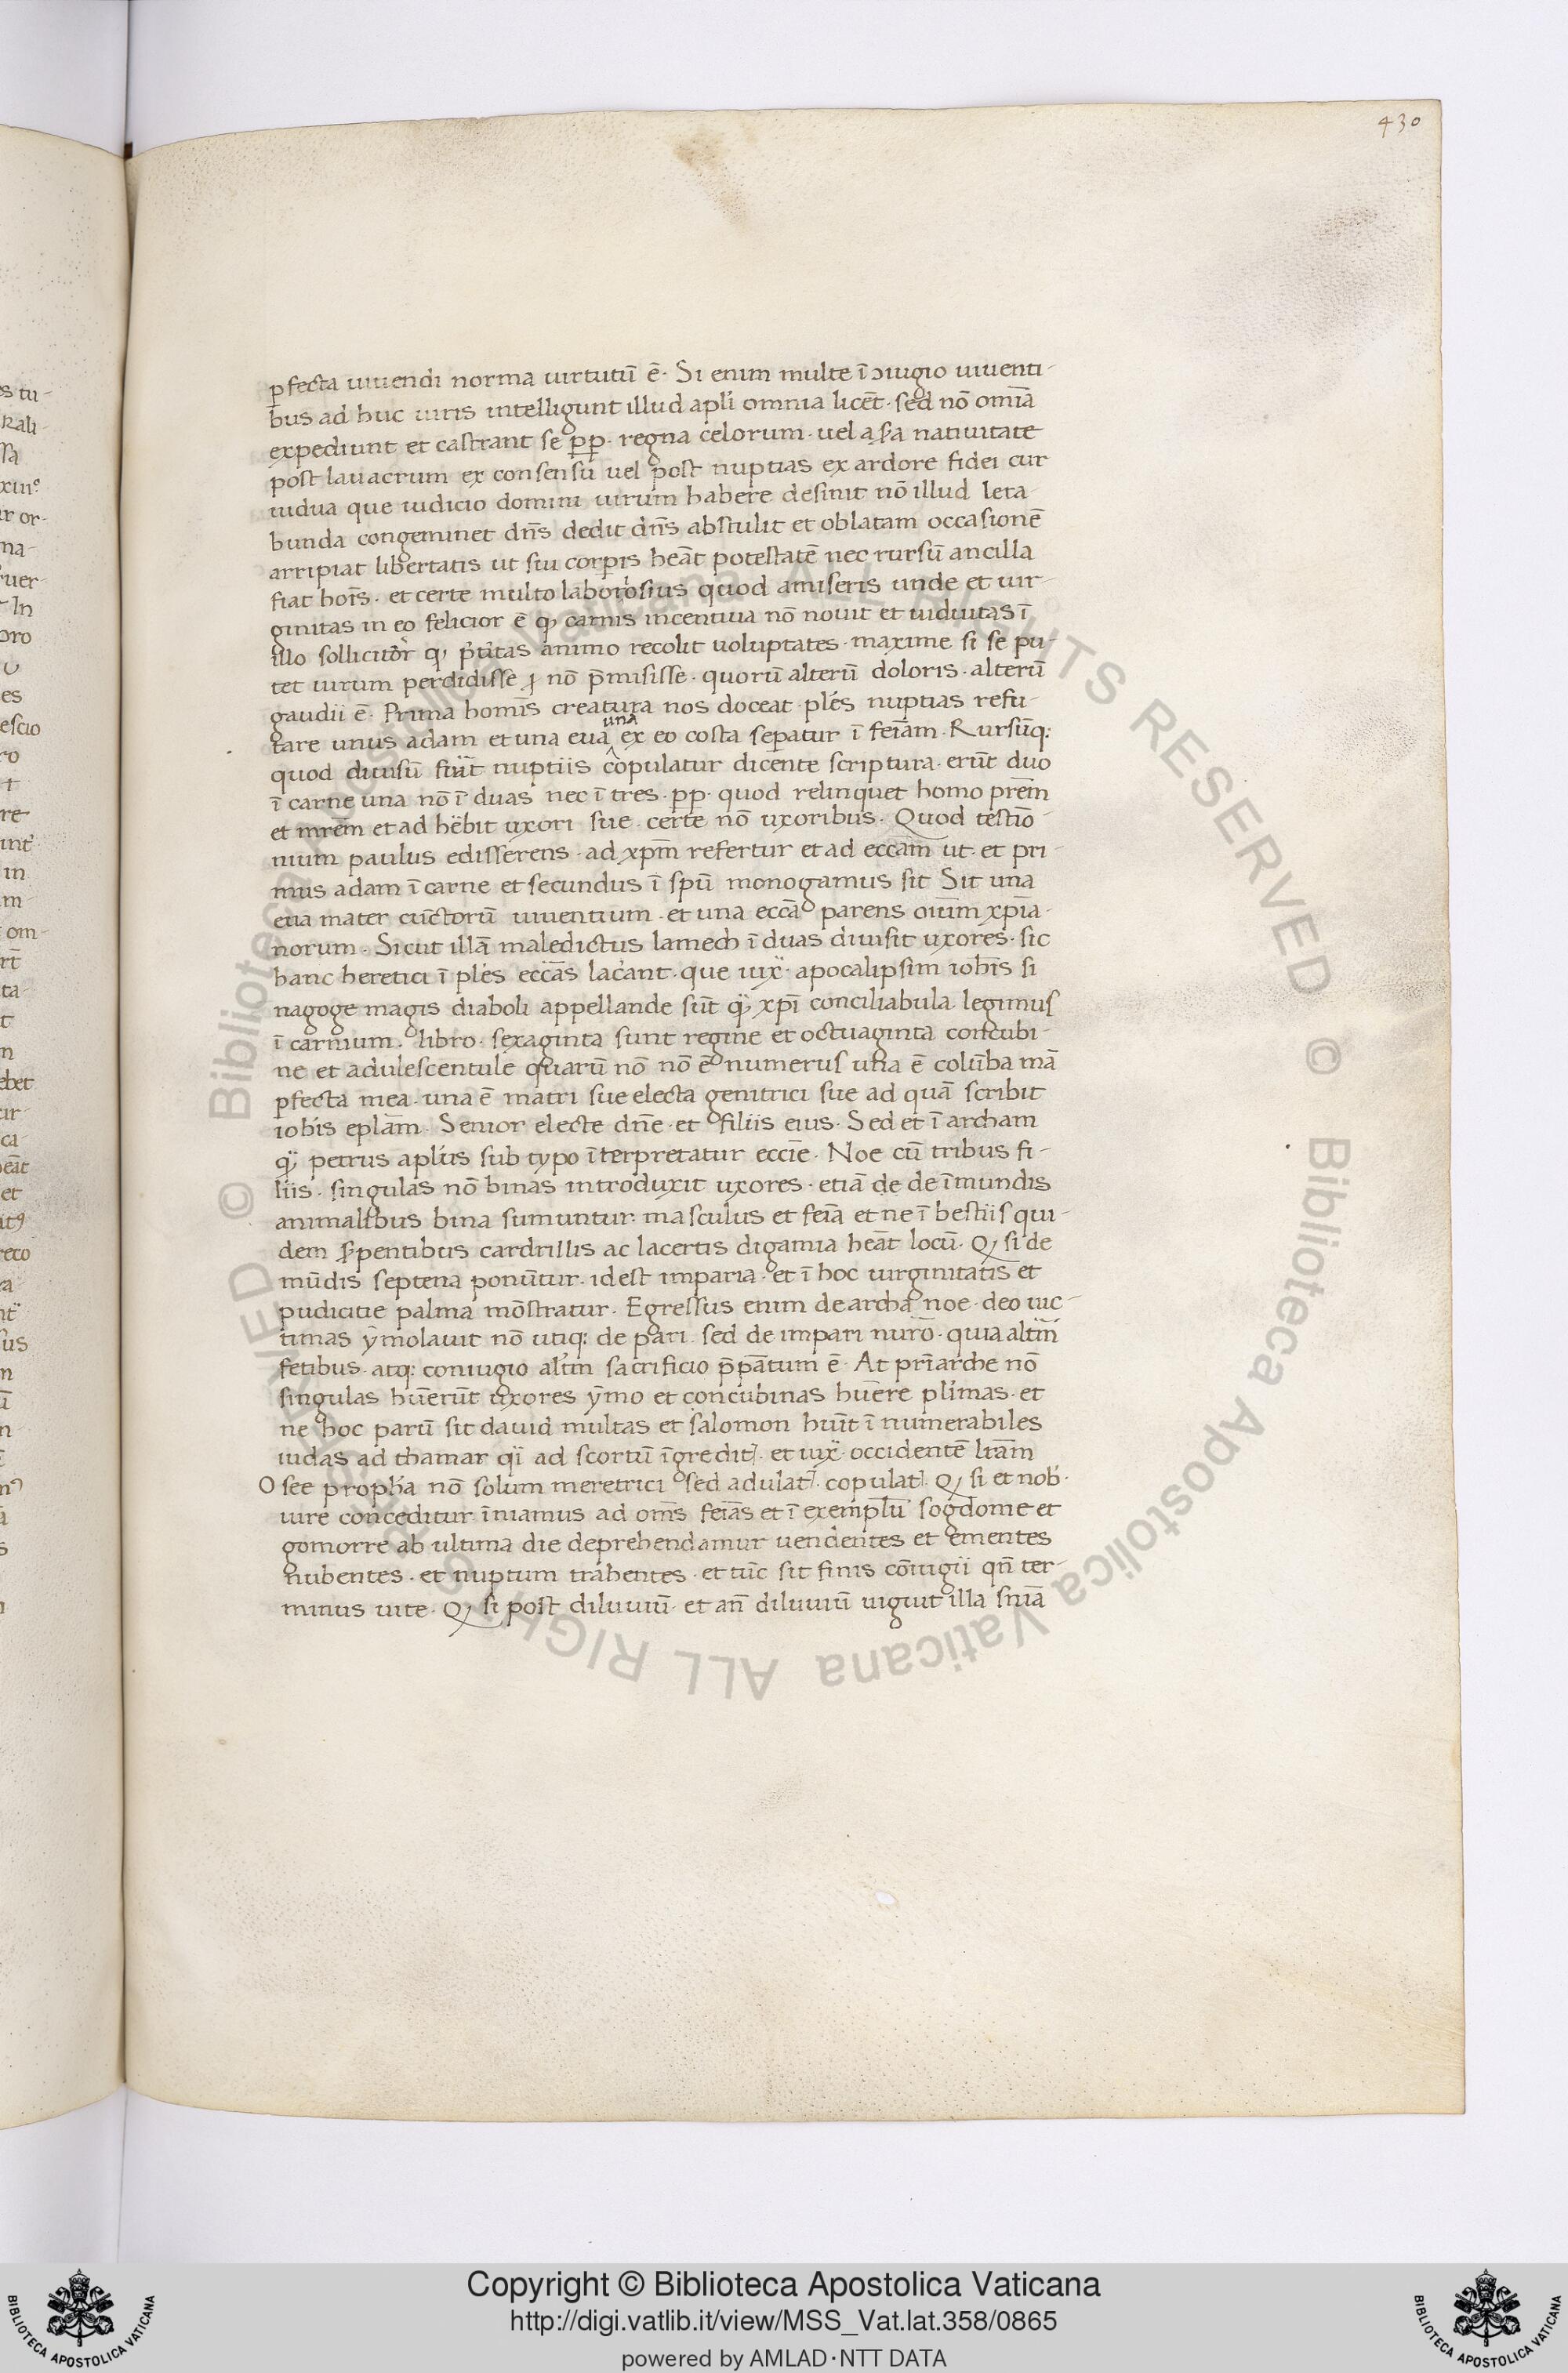 430
ꝑfecta uiuendi norma uirtutū ē. Si enim multe ī ↄiugio uiuenti-
bus ad huc uiris intelligunt illud apli omnia licēt. sed nō omīa
expediunt et castrant se ꝓꝑ. regna celorum. uel a natiuitate
post lauacrum ex consensu uel post nuptias ex ardore fidei cur
uidua que iudicio domini uirum habere desinit nō illud leta-
bunda congeminet dn̄s dedit dn̄s abstulit et oblatam occasionē
arripiat libertatis ut sui corꝑis heāt potestatē nec rursū ancilla
fiat hoīs. et certe multo laborosius quod amiseris unde et uir-
ginitas in eo felicior ē ꝙ carnis incentiua nō nouit et uiduitas ī
illo sollicitor ꝙ animo recolit uoluptates. maxime si se pu-
tet uirum perdidisse nō p̄misisse. quorū alterū doloris. alterū
gaudii ē. Prima homīs creatura nos doceat. ples nuptias refu-
tare unus adam et una eua una ex eo costa sepatur ī feīam. Rursūq:
quod diuisū fūit nuptiis copulatur dicente scriptura. erūt duo
ī carne una nō ī duas nec ī tres. ꝓꝑ. quod relinquet homo prēm
et mrēm et ad hēbit uxori sue. certe nō uxoribus. Quod testīo-
nium paulus edisserens. ad xpm̄ refertur et ad eccām ut. et pri-
mus adam ī carne et secundus ī spū monogamus sit Sit una
eua mater cūctorū uiuentium. et una eccā parens oiūm xpīa-
norum. Sicut illā maledictus lamech ī duas diuisit uxores. sic
hanc heretici ī ples eccās lac̓ant. que iux̄. apocalipsim iohīs si
nagoge magis diaboli appellande sūt q̄ xpī conciliabula. legimus
ī carnium. libro. sexaginta sunt regine et octuaginta concubi-
ne et adulescentule quarū nō nō ē numerus una ē colūba mā
ꝑfecta mea. una ē matri sue electa genitrici sue ad quā scribit
iohīs eplām. Senior electe dn̄e. et filiis eius. Sed et ī archam
q̄ petrus aplus sub typo īterpretatur eccīe. Noe cū tribus fi-
liis. singulas nō binas introduxit uxores. etiā de de īmundis
animalibus bina sumuntur. masculus et feīa et ne ī bestiis qui-
dem ẜpentibus cardrillis ac lacertis digamia heāt locū. Ꝙ si de
mūdis septena ponūtur. idest imparia. et ī hoc uirginitatis et
pudicitie palma mōstratur. Egressus enim de archa noe. deo uic-
timas ȳmolauit nō utiq: de pari. sed de impari nūro. quia altīn
fetibus. atq: coniugio altīn sacrificio p̄pātum ē. At prīarche nō
singulas huerūt uxores ȳmo et concubinas huere plimas. et
ne hoc parū sit dauid multas et salomon huīt ī numerabiles
iudas ad thamar q̄ ad scortū īgredit̄. et iux̄. occidentē lrām
Osee propha nō solum meretrici sed adulat̄. copulat̄. Ꝙ si et nob.
iure conceditur īniamus ad om̄s feīas et ī exemplū sogdome et
gomorre ab ultima die deprehendamur uendentes et ementes
nubentes. et nuptum trahentes. et tūc sit finis cōiugii qn̄ ter-
minus uite. Ꝙ si post diluuiū. et an̄ diluuiū uiguit illa snīa
Copyright © Biblioteca Apostolica Vaticana
http://digi.vatlib.it/view/MSS_Vat.lat.358/0865
powered by AMLAD·NTT DATA
BIBLIOTECA APOSTOLICA VATICANA
BIBLIOTECA APOSTOLICA VATICANA
© Biblioteca Apostolica Vaticana ALL RIGHTS RESERVED © Biblioteca Apostolica Vaticana ALL RIGHTS RESERVED